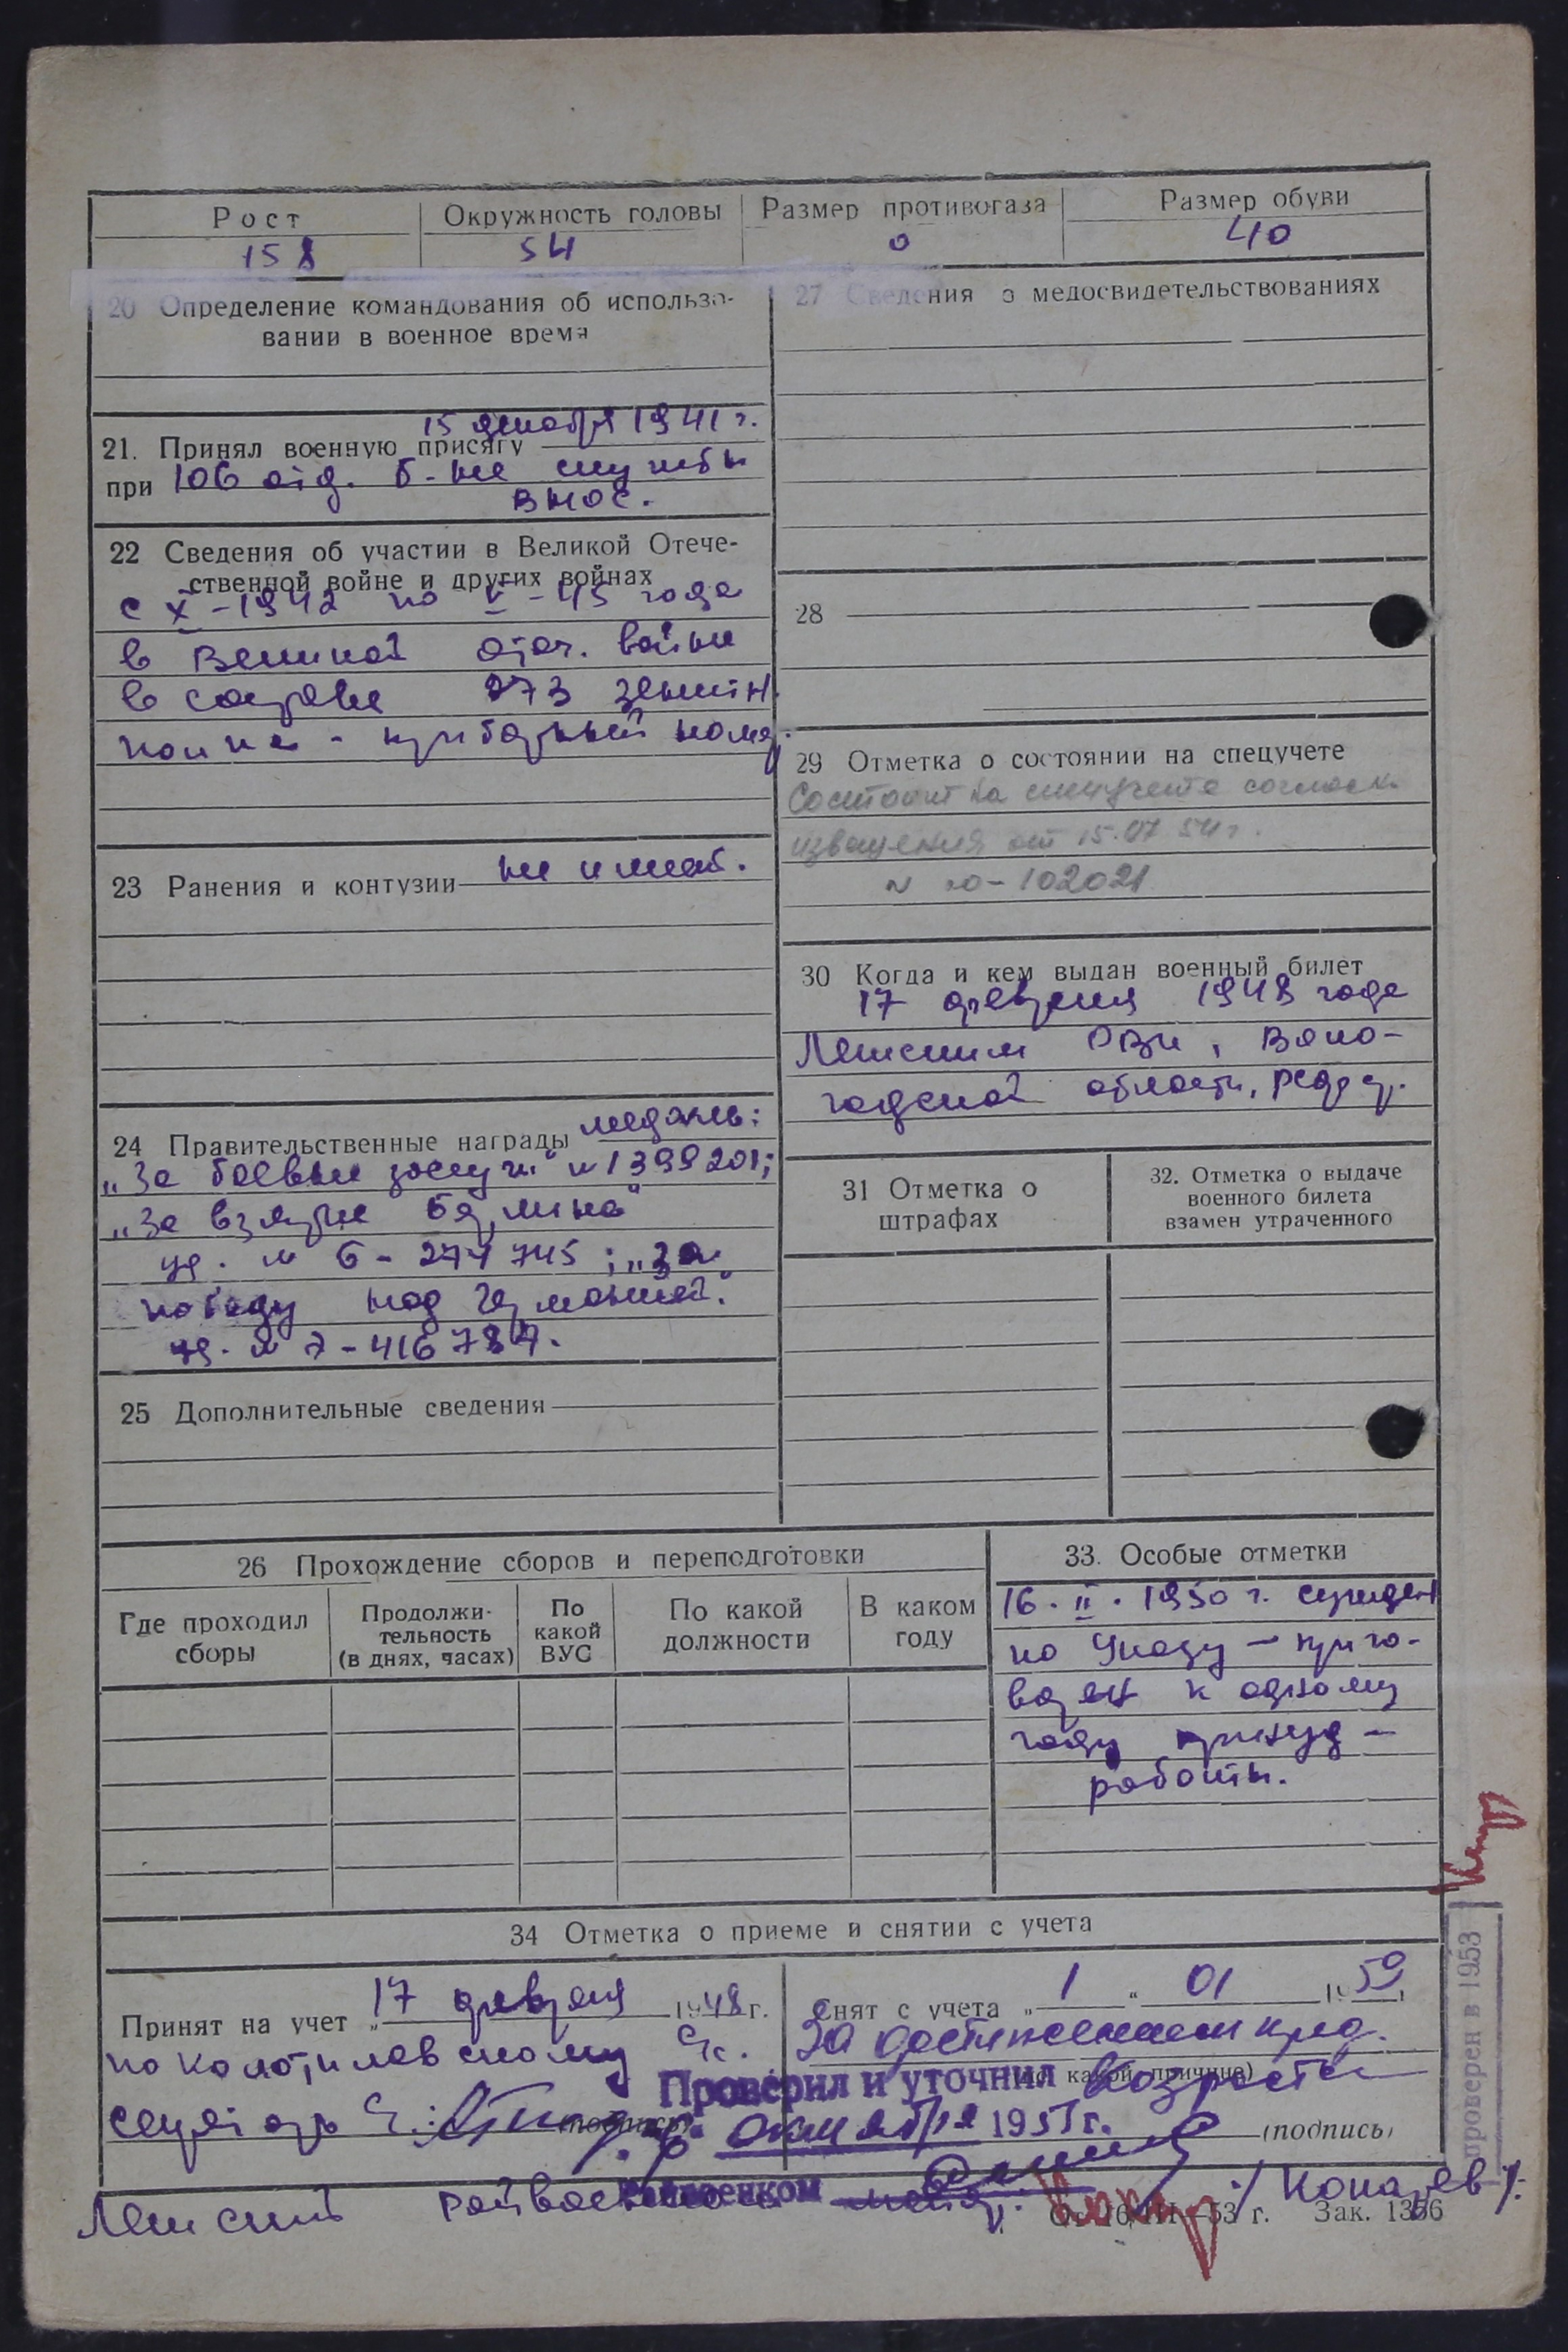 Рост
Окружность головы
Размер противогаза
Размер обуви
158
54
0
40
20 Определение командования об использо-
вании в военное время
15 декабря 1941 г.
21. Принял военную присягу
при 106 отд. б-не службы
ВНОС.
22 Сведения об участии в Великой Отече-
ственной войне и других войнах
с X-1942 по V-45 года
в Великой отеч. войне
в составе 273 зенитн.
полка - приборный номер.
23 Ранения и контузии не имеет.
24 Правительственные награды медаль:
„За боевые заслуги" № 1399201;
„За взятие Берлина"
уд. № б-274745; „За
победу над Германией."
25 Дополнительные сведения
27 Сведения о медосвидетельствованиях
28
29 Отметка о состоянии на спецучете
Состоит на спецучете согласн.
извещения от 15.07 54 г.
30 Когда и кем выдан военный билет
17 февраля 1948 года
РВК, Волo-
годской области, РСФСР.
31 Отметка о
штрафах
32. Отметка о выдаче
военного билета
взамен утраченного
26 Прохождение сборов и переподготовки
Где проходил
сборы
Продолжи-
тельность
(в днях, часах)
По
какой
ВУС
По какой
должности
В каком
году
33. Особые отметки
16. II. 1950 г. сужден
по Указу — приго-
ворен к одному
году принуд —
работы.
34 Отметка о приеме и снятии с учета
Принят на учет „17 февраля 1948 г.
Снят с учета „1" 01 1959
за достижением пред.
возраста
(по какой причине)
(подпись)
(подпись)
Проверил и уточнил
октября 1957 г.
Райвоенком
/Копарев/.
От 16/III—53 г. Зак. 1356
проверен в 1953